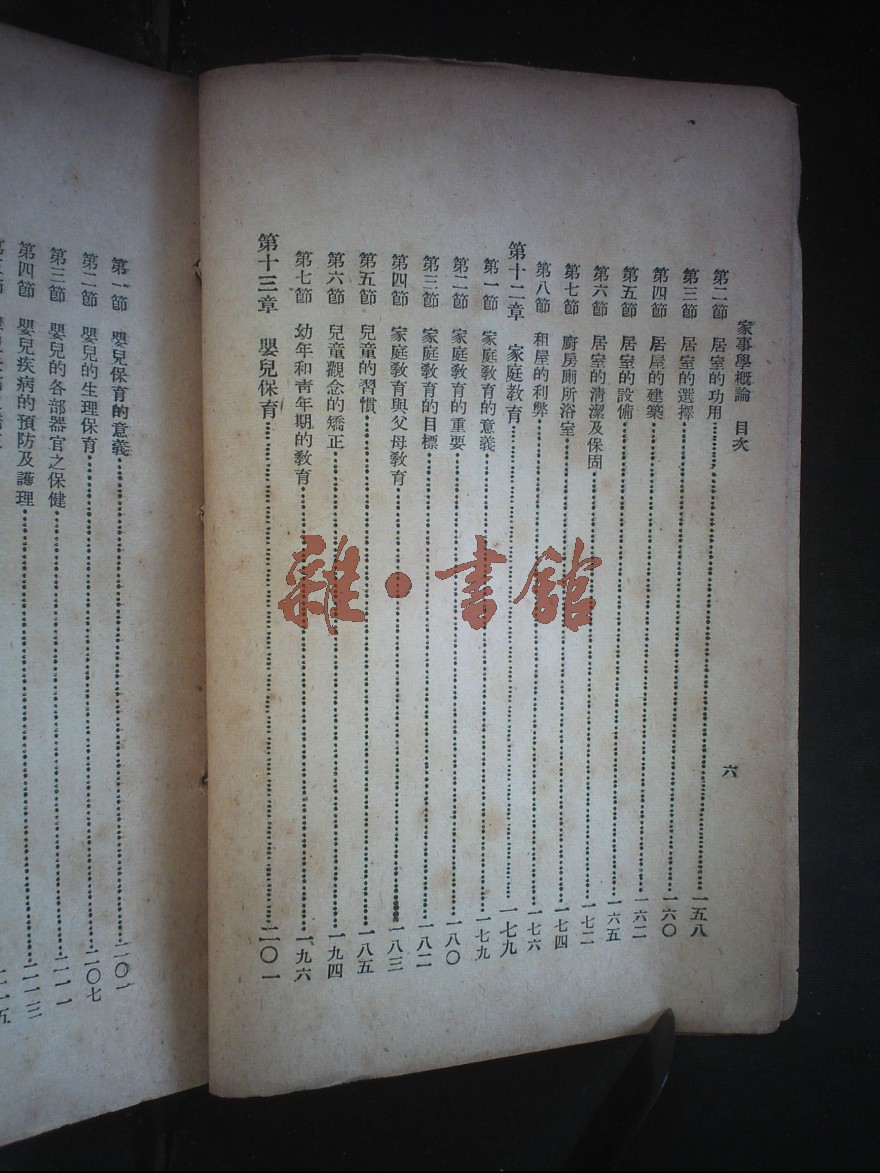 家事學概論　目次
六
第二節　居室的功用………一五八
第三節　居室的選擇………一六〇
第四節　居屋的建築………一六二
第五節　居室的設備………一六五
第六節　居室的清潔及保固………一七二
第七節　廚房廁所浴室………一七四
第八節　租屋的利弊………一七六
第十二章　家庭教育………一七九
第一節　家庭教育的意義………一七九
第二節　家庭教育的重要………一八〇
第三節　家庭教育的目標………一八二
第四節　家庭教育與父母教育………一八三
第五節　兒童的習慣………一八五
第六節　兒童觀念的矯正………一九四
第七節　幼年和青年期的教育………一九六
第十三章　嬰兒保育………二〇一
第一節　嬰兒保育的意義………二〇一
第二節　嬰兒的生理保育………二〇七
第三節　嬰兒的各部器官之保健………二一一
第四節　嬰兒疾病的預防及護理………二一三
雜·書館